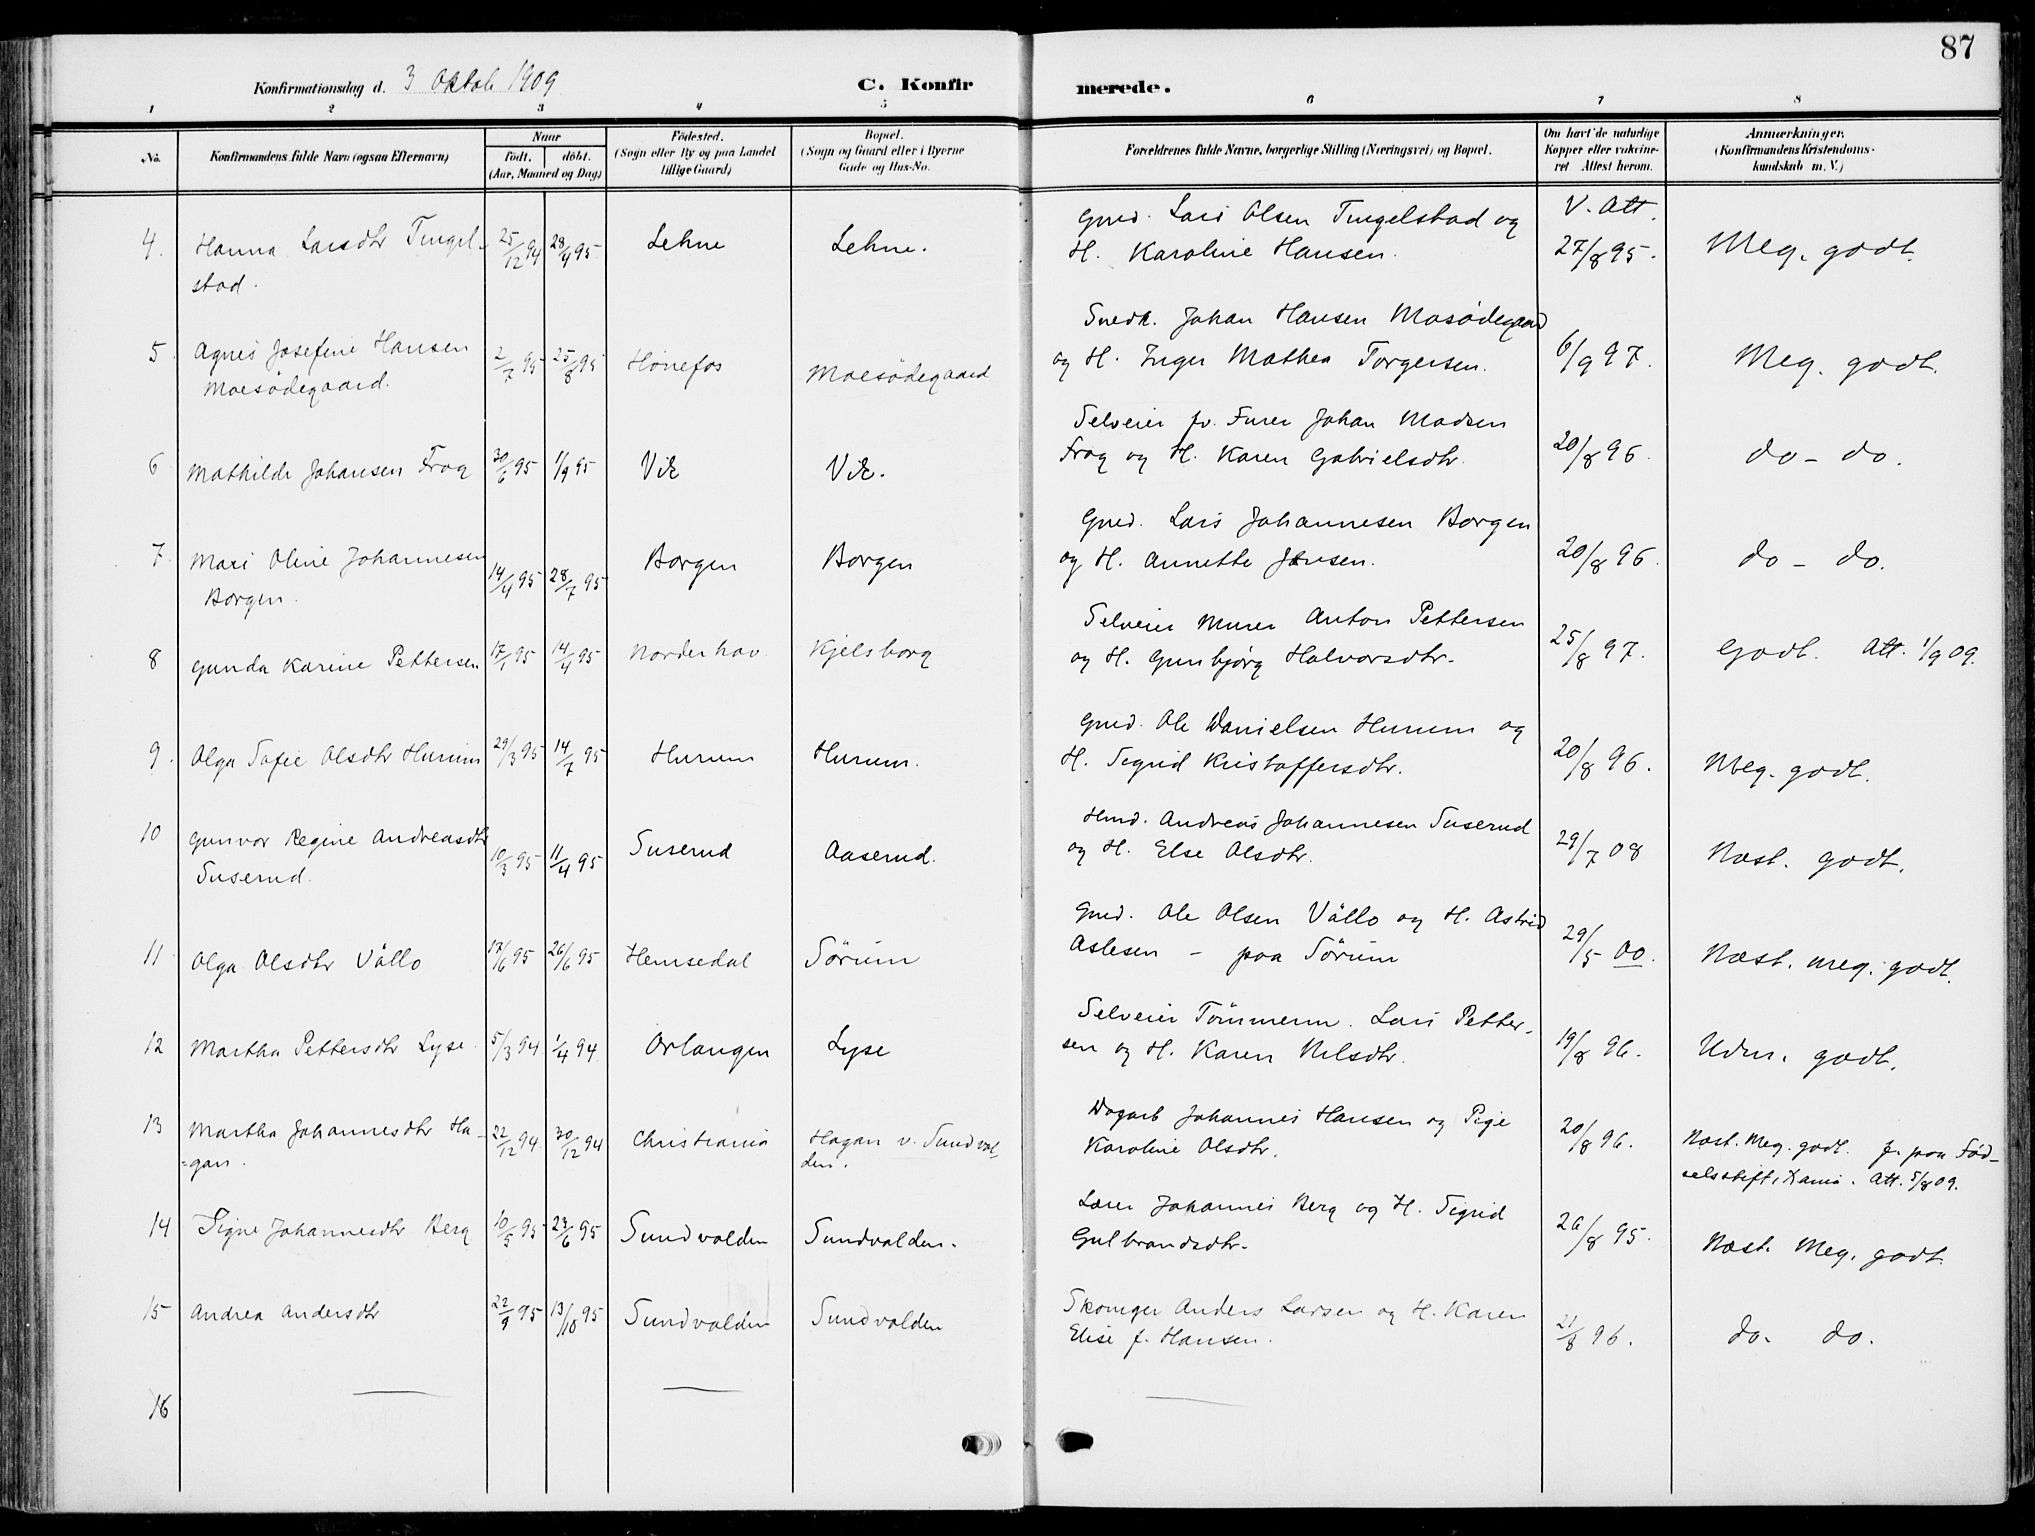 87
Konfirmationsdag d. 3 Oktob 1909
C. Konfir merede.
1 2 3 4 5 6 7 8
No. Konfirmandens fulde Navn (ogsaa Efternavn) Naar födt. döbt. (Aar, Maaned og Dag) Födested. (Sogn eller By og paa Landet tillige Gaard) Bopæl. (Sogn og Gaard eller i Byerne Gade og Hus-No. Forældrenes fulde Navne, borgerlige Stilling (Næringsvei) og Bopæl. Om havt de naturlige Kopper eller vakcineret Attest herom. Anmærkninger. (Konfirmandens Kristendomskundskab m. V.)
4. Hanna Larsdtr Tingelstad. 25/12 94 28/4 95 Lehne Lehne. Gmd. Lars Olsen Tingelstad og H. Karoline Hansen. V. Att. 27/8 95. Meg. godt.
5. Agnes Josefine Hansen Moesödegaard. 2/7 95 25/8 95 Hönefos Moesödegaard Snedk. Johan Hansen Mosödegaard og H. Inger Mathea Torgersen. 6/9 97. Meg. godt.
6 Mathilde Johansen Frog 30/6 95 1/9 95 Vik Vik. Selveier fv. Furer Johan Madsen Frog og H. Karen Gabrielsdtr. 20/8 96. do - do.
7. Mari Oline Johannesen Borgen. 14/4 95 28/7 95 Borgen Borgen Gmd. Lars Johannesen Borgen og H. Annette Jensen. 20/8 96. do - do.
8 Gunda Karine Pettersen 17/1 95 14/4 95 Norderhov Kjelsborg Selveier Murer Anton Pettersen og H. Gunbjørg Halvorsdtr. 25/8 97. Godt. Att. 1/9 09.
9. Olga Sofie Olsdtr Hurum 29/3 95 14/7 95 Hurum Hurum. Gmd. Ole Danielsen Hurum og H. Sigrid Kristoffersdtr. 20/8 96. Meg. godt.
10 Gunvor Regine Andreasdtr Suserud. 10/3 95 11/4 95 Suserud Aaserud. Hmd. Andreas Johannesen Suserud og H. Else Olsdtr. 29/7 08 Næst. godt.
11 Olga Olsdtr Vållo 17/6 95 26/6 95 Hemsedal Sörum Gmd. Ole Olsen Vållo og H. Astrid Aslesen - paa Sörum 29/5 00. Næst. meg. godt.
12 Martha Pettersdtr Lyse. 5/3 94 1/4 94 Orlangen Lyse Selveier Tömmerm. Lars Pettersen og H. Karen Nilsdtr. 19/8 96. Udm. godt.
13 Martha Johannesdtr Hagan. 22/12 94 30/12 94 Christiania Hagan v. Sundvolden. Dagarb Johannes Hansen og Pige Karoline Olsdtr. 20/8 96. Næst. Meg. godt. f. paa Fødselsstift, Xania. Att. 5/8 09.
14 Signe Johannesdtr Berg 10/5 95 23/6 95 Sundvolden Sundvolden. Lærer Johannes Berg og H. Sigrid Gulbrandsdtr. 26/8 95. Næst. Meg. godt.
15 Andrea Andersdtr 22/9 95 13/10 95 Sundvolden Sundvolden Skomger Anders Larsen og H. Karen Elise f. Hansen. 21/8 96. do. do.
16